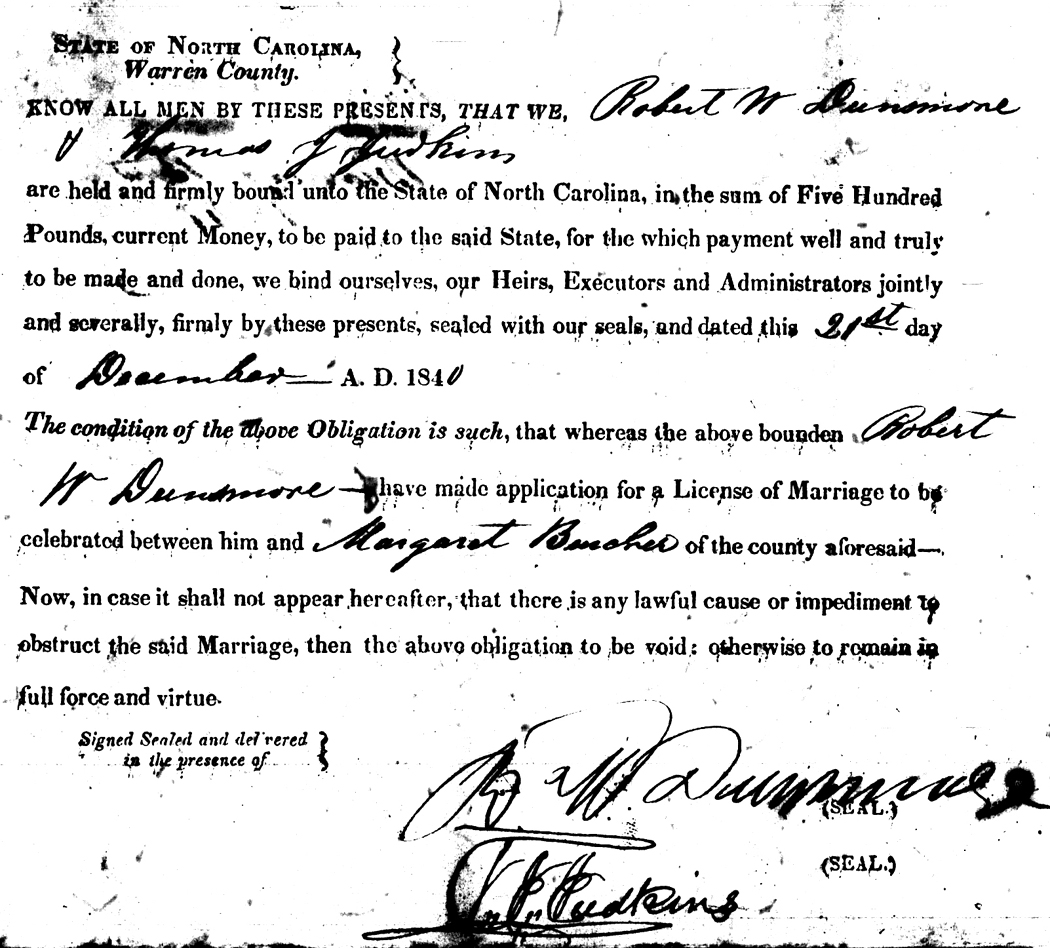 STATE OF NORTH CAROLINA,
Warren County.
KNOW ALL MEN BY THESE PRESENTS, THAT WE, Robert W Dunsmore
& Thomas J Judkins
are held and firmly bound unto the State of North Carolina, in the sum of Five Hundred
Pounds, current Money, to be paid to the said State, for the which payment well and truly
to be made and done, we bind ourselves, our Heirs, Executors and Administrators jointly
and severally, firmly by these presents, sealed with our seals, and dated this 21st day
of December A. D. 1840
The condition of the above Obligation is such, that whereas the above bounden Robert
W Dunsmore have made application for a License of Marriage to be
celebrated between him and Margaret of the county aforesaid—.
Now, in case it shall not appear hereafter, that there is any lawful cause or impediment to
obstruct the said Marriage, then the above obligation to be void: otherwise to remain in
full force and virtue.
Signed Sealed and delivered
in the presence of
R. W. Dunsmore
(SEAL.)
(SEAL.)
Judkins